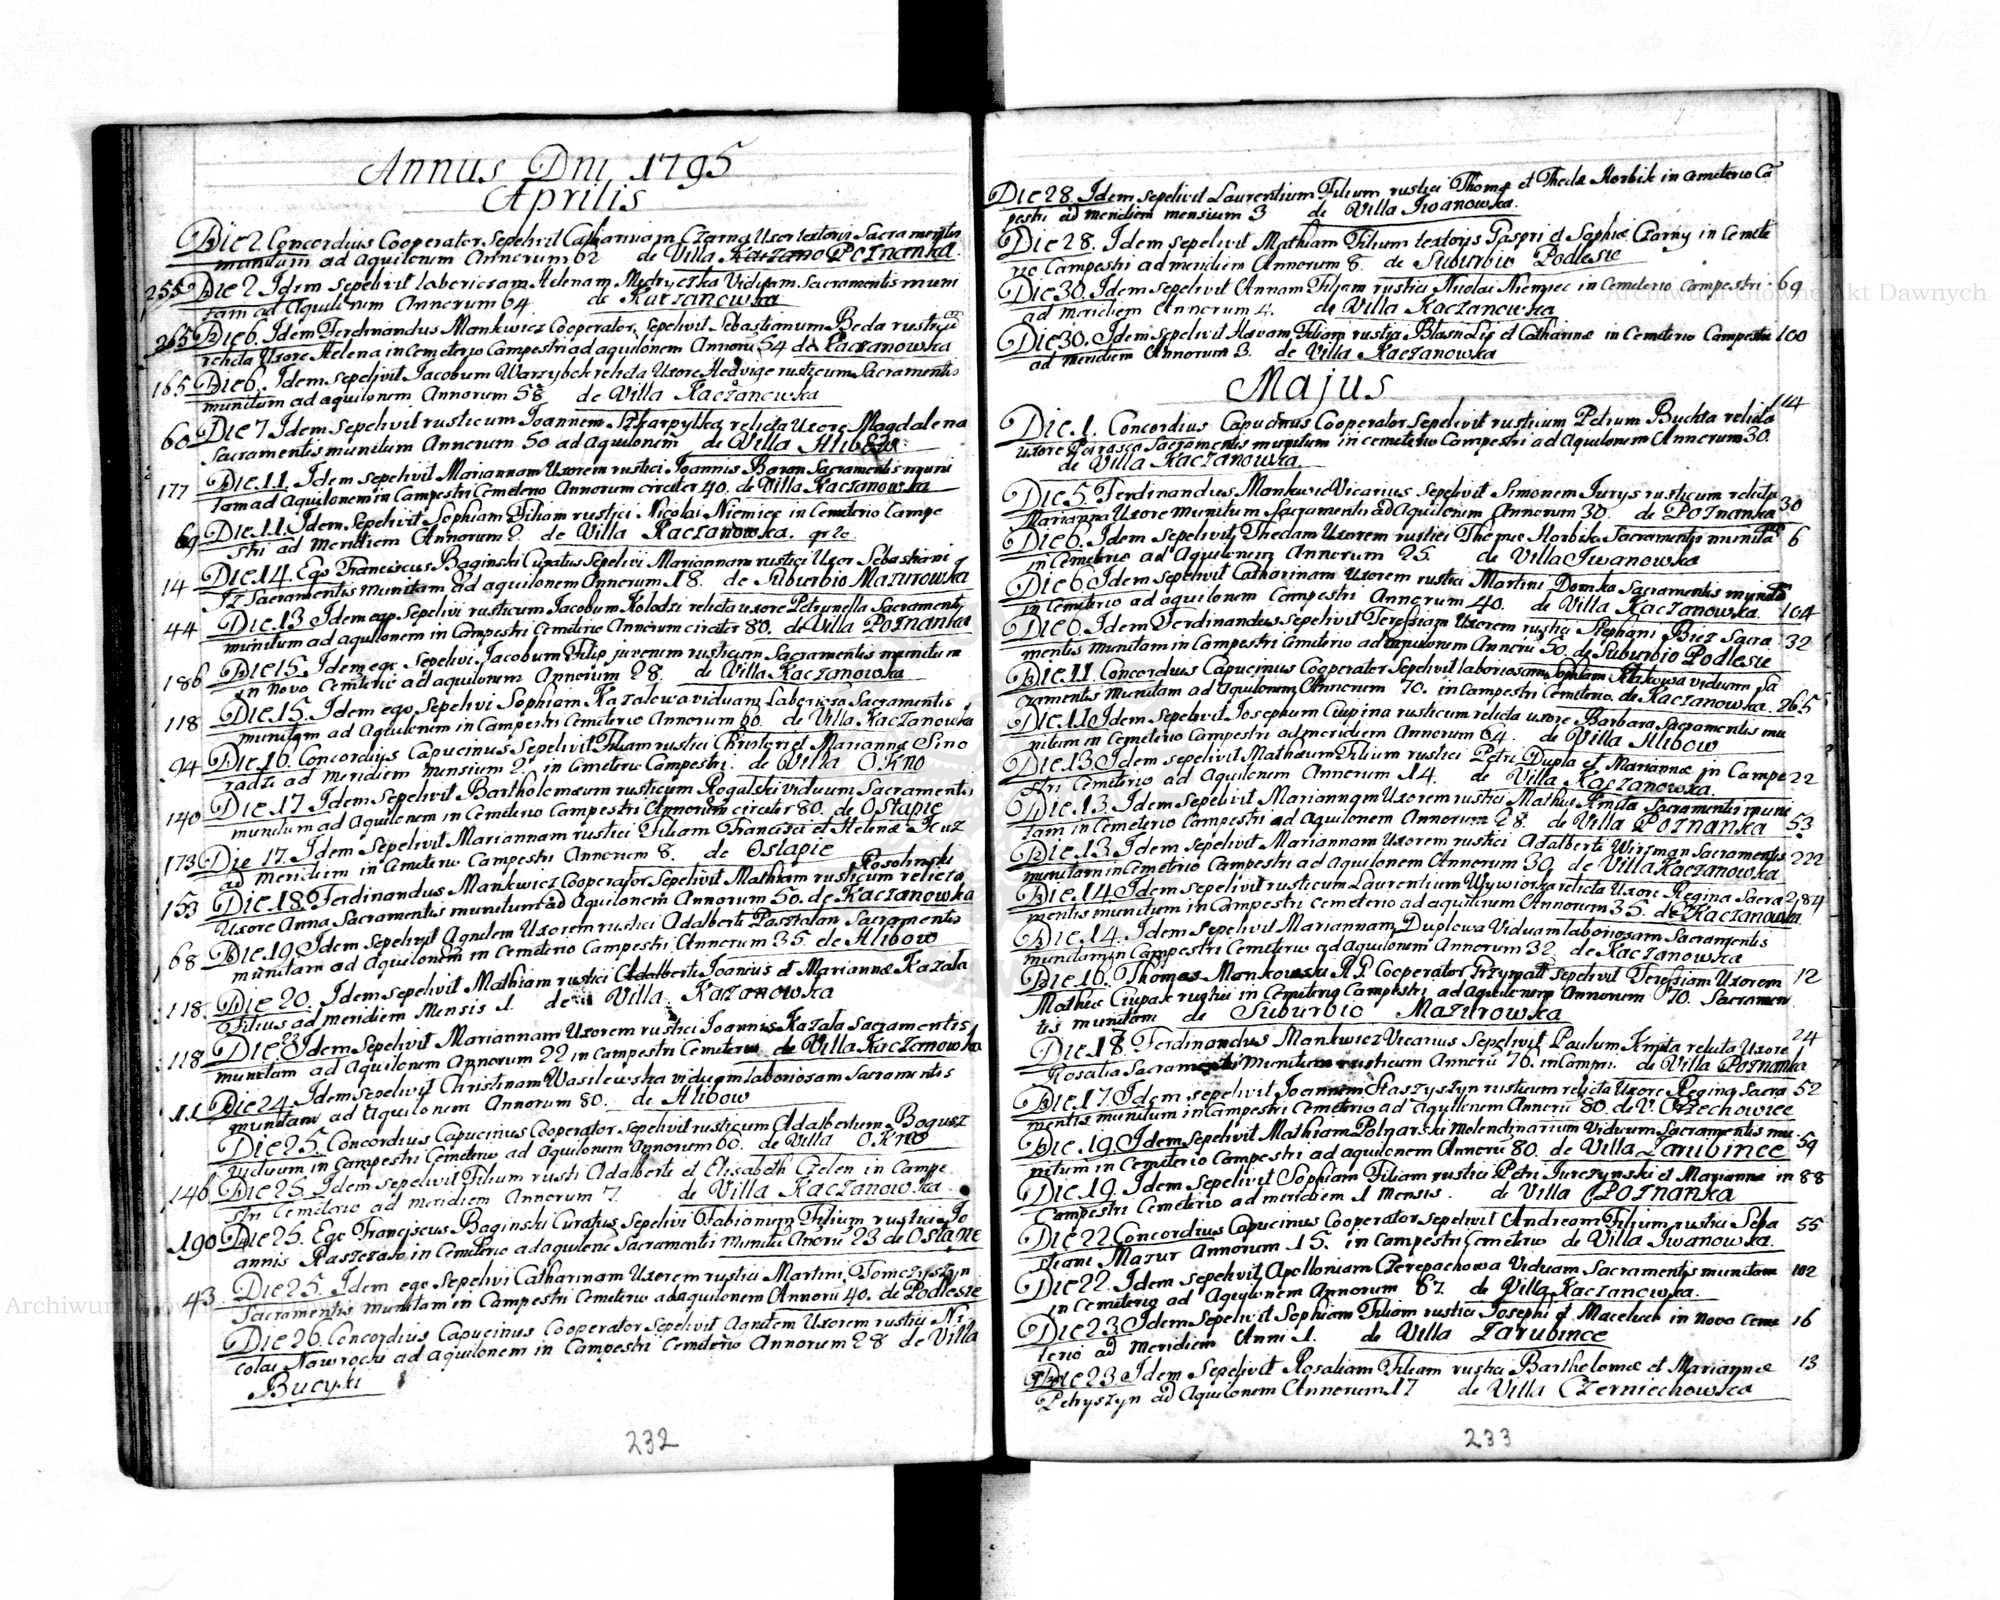 Annus Dni 1795
Aprilis
Die 2. Concordius Cooperator Sepelivit Catharinam Czarna Uxor textoris Sacramentis
munitam ad aquilonem Annorum 62 de Villa Kaczano Poznanka
255 Die 2 Idem Sepelivit laboriosam Helenam Mędryczka Viduam Sacramentis muni
tam ad Aquilonem Annorum 64 de Kaczanowka
265 Die 6. Idem Ferdinandus Mankwicz Cooperator Sepelivit Sebastianum Beda rusticum
relicta Uxore Helena in Cemeterio Campestri ad aquilonem Annorū 54 de Kaczanowka
165 Die 6. Idem Sepelivit Iacobum Warzybok relicta Uxore Hedvige rusticum Sacramentis
munitum ad aquilonem Annorum 58 de Villa Kaczanowka
60 Die 7 Idem Sepelivit rusticum Ioannem relicta Uxore Magdalena
Sacramentis munitum Annorum 50 ad Aquilonem de Villa Hlibow
177 Die 11. Idem Sepelivit Mariannam Uxorem rustici Ioannis Baran Sacramentis muni
tam ad Aquilonem in Campestri Cemeterio Annorum circiter 40. de Villa Kaczanowka
69 Die 11. Idem Sepelivit Sophiam Filiam rustici Nicolai Niemiec in Cemeterio Campe
stri ad Meridiem Annorum 2. de Villa Kaczanowka.
14 Die 14. Ego Franciscus Baginski Curatus Sepelivi Mariannam rustici Uxor Sebastiani
Iz Sacramentis munitam ad aquilonem Annorum 18. de Suburbio Mazurowka
44 Die 13 Idem ego Sepelivi rusticum Iacobum Kolodzi relicta uxore Petrunella Sacramentis
munitum ad aquilonem in Campestri Cemeterio Annorum circiter 80. de Villa Poznanka
186 Die 15. Idem ego Sepelivi Iacobum Filip juvenem rusticum Sacramentis munitum
in novo Cemeterio ad aquilonem Annorum 28. de Villa Kaczanowka
118 Die 15. Idem ego Sepelivi Sophiam Kazalowa viduam Laboriosa Sacramentis
munitam ad Aquilonem in Campestri Cemeterio Annorum 60. de Villa Kaczanowka
94 Die 16. Concordius Capucinus Sepelivit Filiam rustici Christeri et Mariannæ Sino
radzi ad Meridiem Mensium 2. in Cemeterio Campestri. de Villa Okno
140 Die 17 Idem Sepelivit Bartholomæum rusticum Rogalski viduum Sacramentis
munitum ad Aquilonem in Cemeterio Campestri Annorum circiter 80. de Ostapie
173 Die 17. Idem Sepelivit Mariannam rustici Filiam Francisci et Helenæ Kuz
ad meridiem in Cemeterio Campestri Annorum 8. de Ostapie
Rosolinski
153 Die 18. Ferdinandus Mankwicz Cooperator Sepelivit Mathiam rusticum relicta
Uxore Anna Sacramentis munitum ad Aquilonem Annorum 50. de Kaczanowka
68 Die 19. Idem Sepelivit Agnetem Uxorem rustici Adalberti Pasztalan Sacramentis
munitam ad Aquilonem in Cemeterio Campestri Annorum 35. de Hlibow
118 Die 20. Idem Sepelivit Mathiam rustici Adalberti Ioannis et Mariannæ Kazala
Filius ad meridiem Mensis 1. de Villa Kaczanowka
118 Die 22 Idem Sepelivit Mariannam Uxorem rustici Ioannis Kazala Sacramentis
munitam ad Aquilonem Annorum 22 in Campestri Cemeterio de Villa Kaczanowka
11 Die 24. Idem Sepelivit Christinam Wasilewska viduam laboriosam Sacramentis
munitam ad Aquilonem Annorum 80. de Hlibow
Die 25. Concordius Capucinus Cooperator Sepelivit rusticum Adalbertum Bogusz
Viduum in Campestri Cemeterio ad Aquilonem Annorum 60. de Villa Okno
146 Die 25. Idem Sepelivit Filium rusti Adalberti et Elisabeth Czelen in Campe
stri Cemeterio ad meridiem Annorum 7. de Villa Kaczanowka
190 Die 25. Ego Franciscus Baginski Curatus Sepelivi Fabianum Filium rustici Jo
annis Kaszczak in Cemeterio ad aquilone Sacramentis munitū Anorū 23 de Ostapie
43 Die 25. Idem ego Sepelivi Catharinam Uxorem rustici Martini Tomczyszyn
Sacramentis munitam in Campestri Cemeterio ad aquilonem Annorū 40. de Podlesie
Die 26. Concordius Capucinus Cooperator Sepelivit Agnetem Uxorem rustici Ni
colai Nawrocki ad aquilonem in Campestri Cemeterio Annorum 28 de Villa
Bucyki
232
Die 28. Idem Sepelivit Laurentium Filium rustici Thomæ et Theclæ Horbik in Cemeterio Ca
pestri ad meridiem mensium 3 de Villa Iwanowka.
Die 28. Idem Sepelivit Mathiam Filium textoris Gaspri et Sophiæ Czarny in Cemete
rio Campestri ad meridiem Annorum 8. de Suburbio Podlesie
Die 30. Idem Sepelivit Annam Filiam rustici Nicolai Niemiec in Cemeterio Campestri 69
ad meridiem Annorum 4. de Villa Kaczanowka
Die 30. Idem Sepelivit Havam Filiam rustici Blasii Lis et Catharinæ in Cemeterio Campestri 100
ad meridiem Annorum 3. de Villa Kaczanowka
Majus
Die 1. Concordius Capucinus Cooperator Sepelivit rusticum Petrum Buchta relicta 114
uxore Parasca Sacramentis munitum in Cemeterio Campestri ad Aquilonem Annorum 30.
de Villa Kaczanowka
Die 5. Ferdinandus Mankwic Vicarius Sepelivit Simonem Iurys rusticum relicta 30
Marianna Uxore Munitum Sacramentis ad Aquilonem Annorum 30. de Poznanka
Die 6. Idem Sepelivit Theclam Uxorem rustici Thomæ Horbik Sacramentis munita 6
in Cemeterio ad Aquilonem Annorum 25. de Villa Iwanowka
Die 6 Idem Sepelivit Catharinam Uxorem rustici Martini Domka Sacramentis munita
in Cemeterio ad aquilonem Campestri Annorum 40. de Villa Kaczanowka. 104
Die 6. Idem Ferdinandus Sepelivit Teressiam Uxorem rustici Stephani Biez Sacra 32
mentis munitam in Campestri Cemeterio ad aquilonem Annorū 50. de Suburbio Podlesie
Die 11. Concordius Capucinus Cooperator Sepelivit laboriosam Sophiam viduam Sa
cramentis munitam ad Aquilonem Annorum 70. in Campestri Cemeterio. de Kaczanowka. 265
Die 11. Idem Sepelivit Iosephum Ciupina rusticum relicta uxore Barbara Sacramentis mu
nitum in Cemeterio Campestri ad meridiem Annorum 64. de Villa Hlibow
Die 13 Idem Sepelivit Mathæum Filium rustici Petri Dupla et Mariannæ in Campe 22
stri Cemeterio ad Aquilonem Annorum 14. de Villa Kaczanowka.
Die 13. Idem Sepelivit Mariannam Uxorem rustici Mathiæ Kmita Sacramentis muni
tam in Cemeterio Campestri ad Aquilonem Annorum 28. de Villa Poznanka 53
Die 13 Idem Sepelivit Mariannam Uxorem rustici Adalberti Wirzman Sacramentis 222
munitam in Cemeterio Campestri ad Aquilonem Annorum 30. de Villa Kaczanowka
Die 14. Idem Sepelivit rusticum Laurentium Wywiorka relicta Uxore Regina Sacra 284
mentis munitum in Campestri Cemeterio ad aquilonem Annorum 35. de Kaczanowka
Die 14. Idem Sepelivit Mariannam Duplowa Viduam laboriosam Sacramentis
munitam in Campestri Cemeterio ad aquilonem Annorum 32. de Kaczanowka
Die 16. Thomas Mankowski R.P. Cooperator Przymatt Sepelivit Teressiam Uxorem 12
Mathiæ Ciupak rustici in Cemeterio Campestri ad Aquilonem Annorum 70. Sacramen
tis munitam de Suburbio Mazurowka
Die 18. Ferdinandus Mankwicz Vicarius Sepelivit Paulum Kmita relicta Uxore 24
Rosalia Sacramentis munitum rusticum Annorū 70. in Campri. de Villa Poznanka
Die 17. Idem Sepelivit Ioannem Staszyszyn rusticum relicta Uxore Regina Sacra 52
mentis munitum in Campestri Cemeterio ad Aquilonem Annorū 80. de V. Orzechowiec
Die 19. Idem Sepelivit Mathiam Polnarski Molendinarium Viduum Sacramentis mu 59
nitum in Cemeterio Campestri ad aquilonem Annorū 80. de Villa Zarubince
Die 19. Idem Sepelivit Sophiam Filiam rustici Petri Jurczynski et Marianna in 88
Campestri Cemeterio ad meridiem 1 Mensis. de Villa Poznanka
Die 22. Concordius Capucinus Cooperator Sepelivit Andream Filium rustici Seba 55
stiani Mazur Annorum 15. in Campestri Cemeterio de Villa Iwanowka.
Die 22. Idem Sepelivit Apolloniam Czerepachowa Viduam Sacramentis munitam 102
in Cemeterio ad Aquilonem Annorum 87. de Villa Kaczanowka.
Die 23. Idem Sepelivit Sophiam Filiam rustici Iosephi et Maceluch in Novo Ceme 16
terio ad Meridiem Anni 1. de Villa Zarubince
Die 23. Idem Sepelivit Rosaliam Filiam rustici Bartholomæ et Mariannæ 13
Petryszyn ad Aquilonem Annorum 17 de Villa Czerniechowka
233
Archiwum Główne Akt Dawnych
Archiwum Główne Akt Dawnych